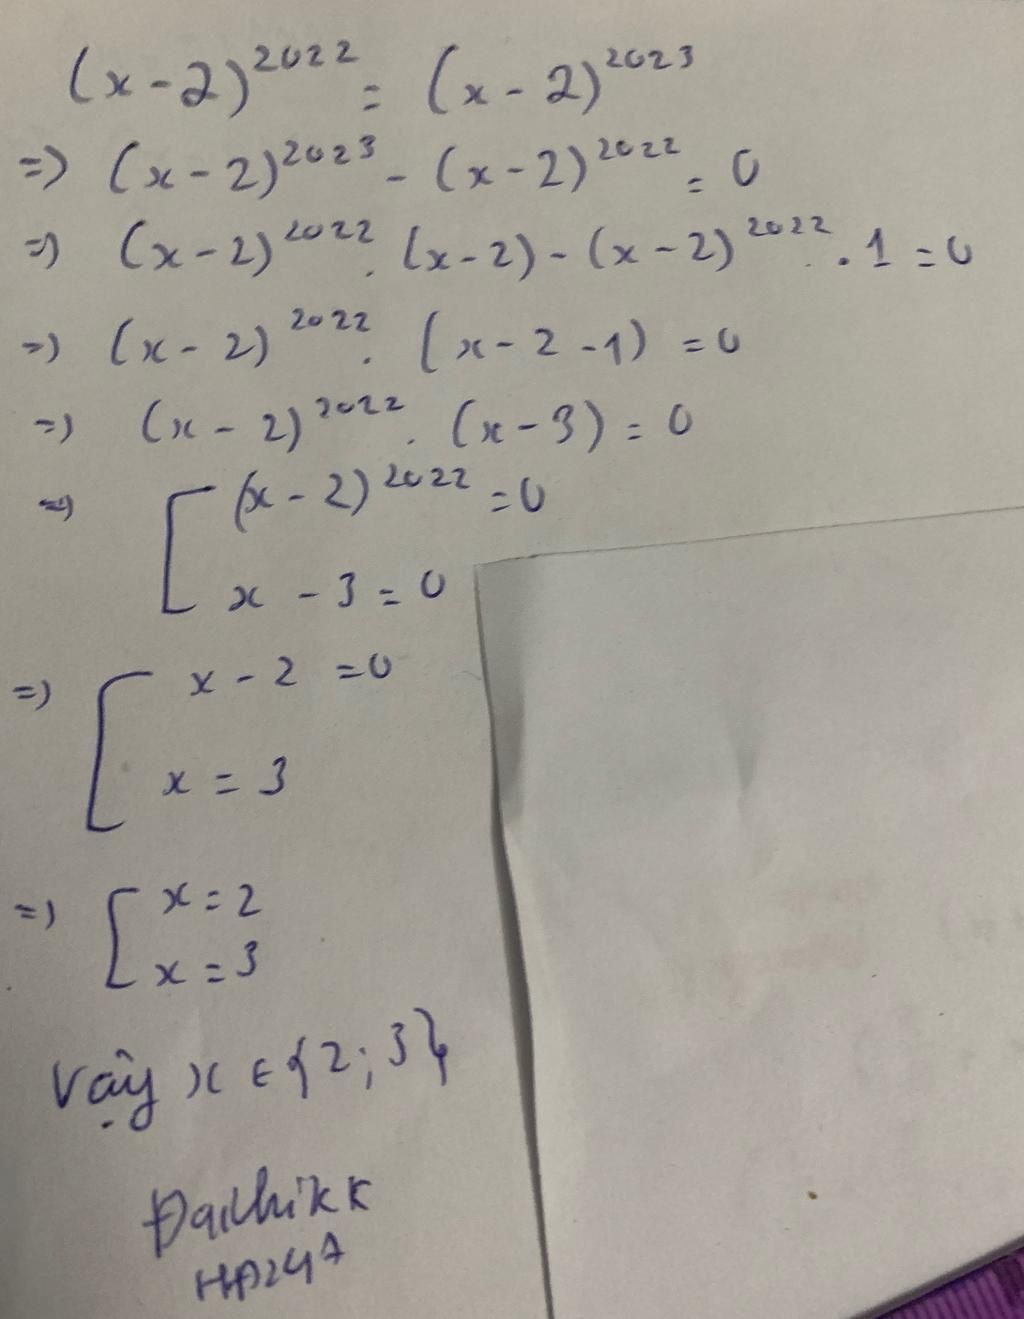 (x-2)^2022 = (x-2)^2023
=> (x-2)^2023 - (x-2)^2022 = 0
=> (x-2)^2022 . (x-2) - (x-2)^2022 . 1 = 0
=> (x-2)^2022 . (x-2-1) = 0
=> (x-2)^2022 . (x-3) = 0
=> [ (x-2)^2022 = 0
x - 3 = 0
=> [ x - 2 = 0
x = 3
=> [ x = 2
x = 3
Vậy x ∈ {2; 3}